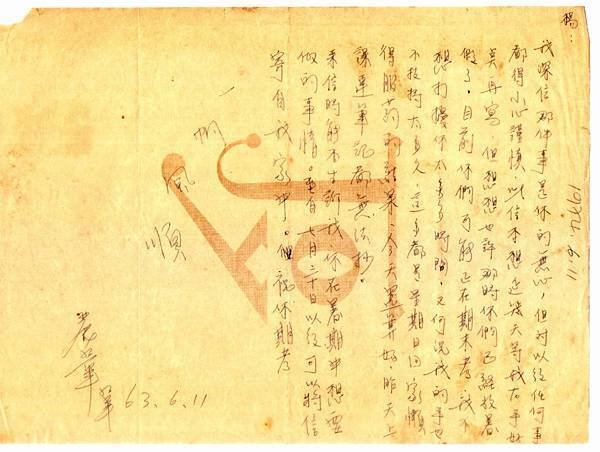 楊：
我深信那件事是你的無心，但對以後任何事
都得小心謹慎。以信本想近幾天等我右手好
再寫，但想想也許那時你們已經放暑
假了，目前你們可能正在期末考，我不
想打擾你太多時間，又何況我的手也
不太多久，這手都是星期日回家懶
得服药的結果，今天還算好，昨天上
課連筆記都無法抄。
來信時能不告訴我，你在暑期中想要
做的事情。自七月三十日以後可以將信
寄自我家中。祝你期考
一帆風順
筆 63.6.11
11.6.1974